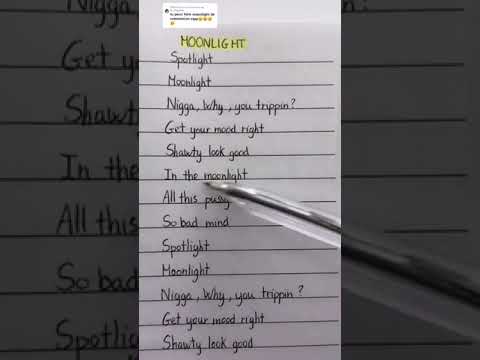 MOONLIGHT
Spotlight
Moonlight
Nigga, Why, you trippin?
Get your mood right
Shawty look good
In the moonlight
All this pussy
So bad mind
Spotlight
Moonlight
Nigga, Why, you trippin?
Get your mood right
Shawty look good